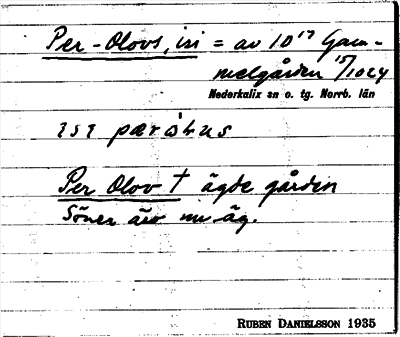 Per-Olovs, isi = av 10¹⁷ Gam-
melgården ¹⁵/10 24
Nederkalix sn o. tg. Norrb. län
Per Olov † ägde gården
Sönen äro nu äg.
RUBEN DANIELSSON 1935